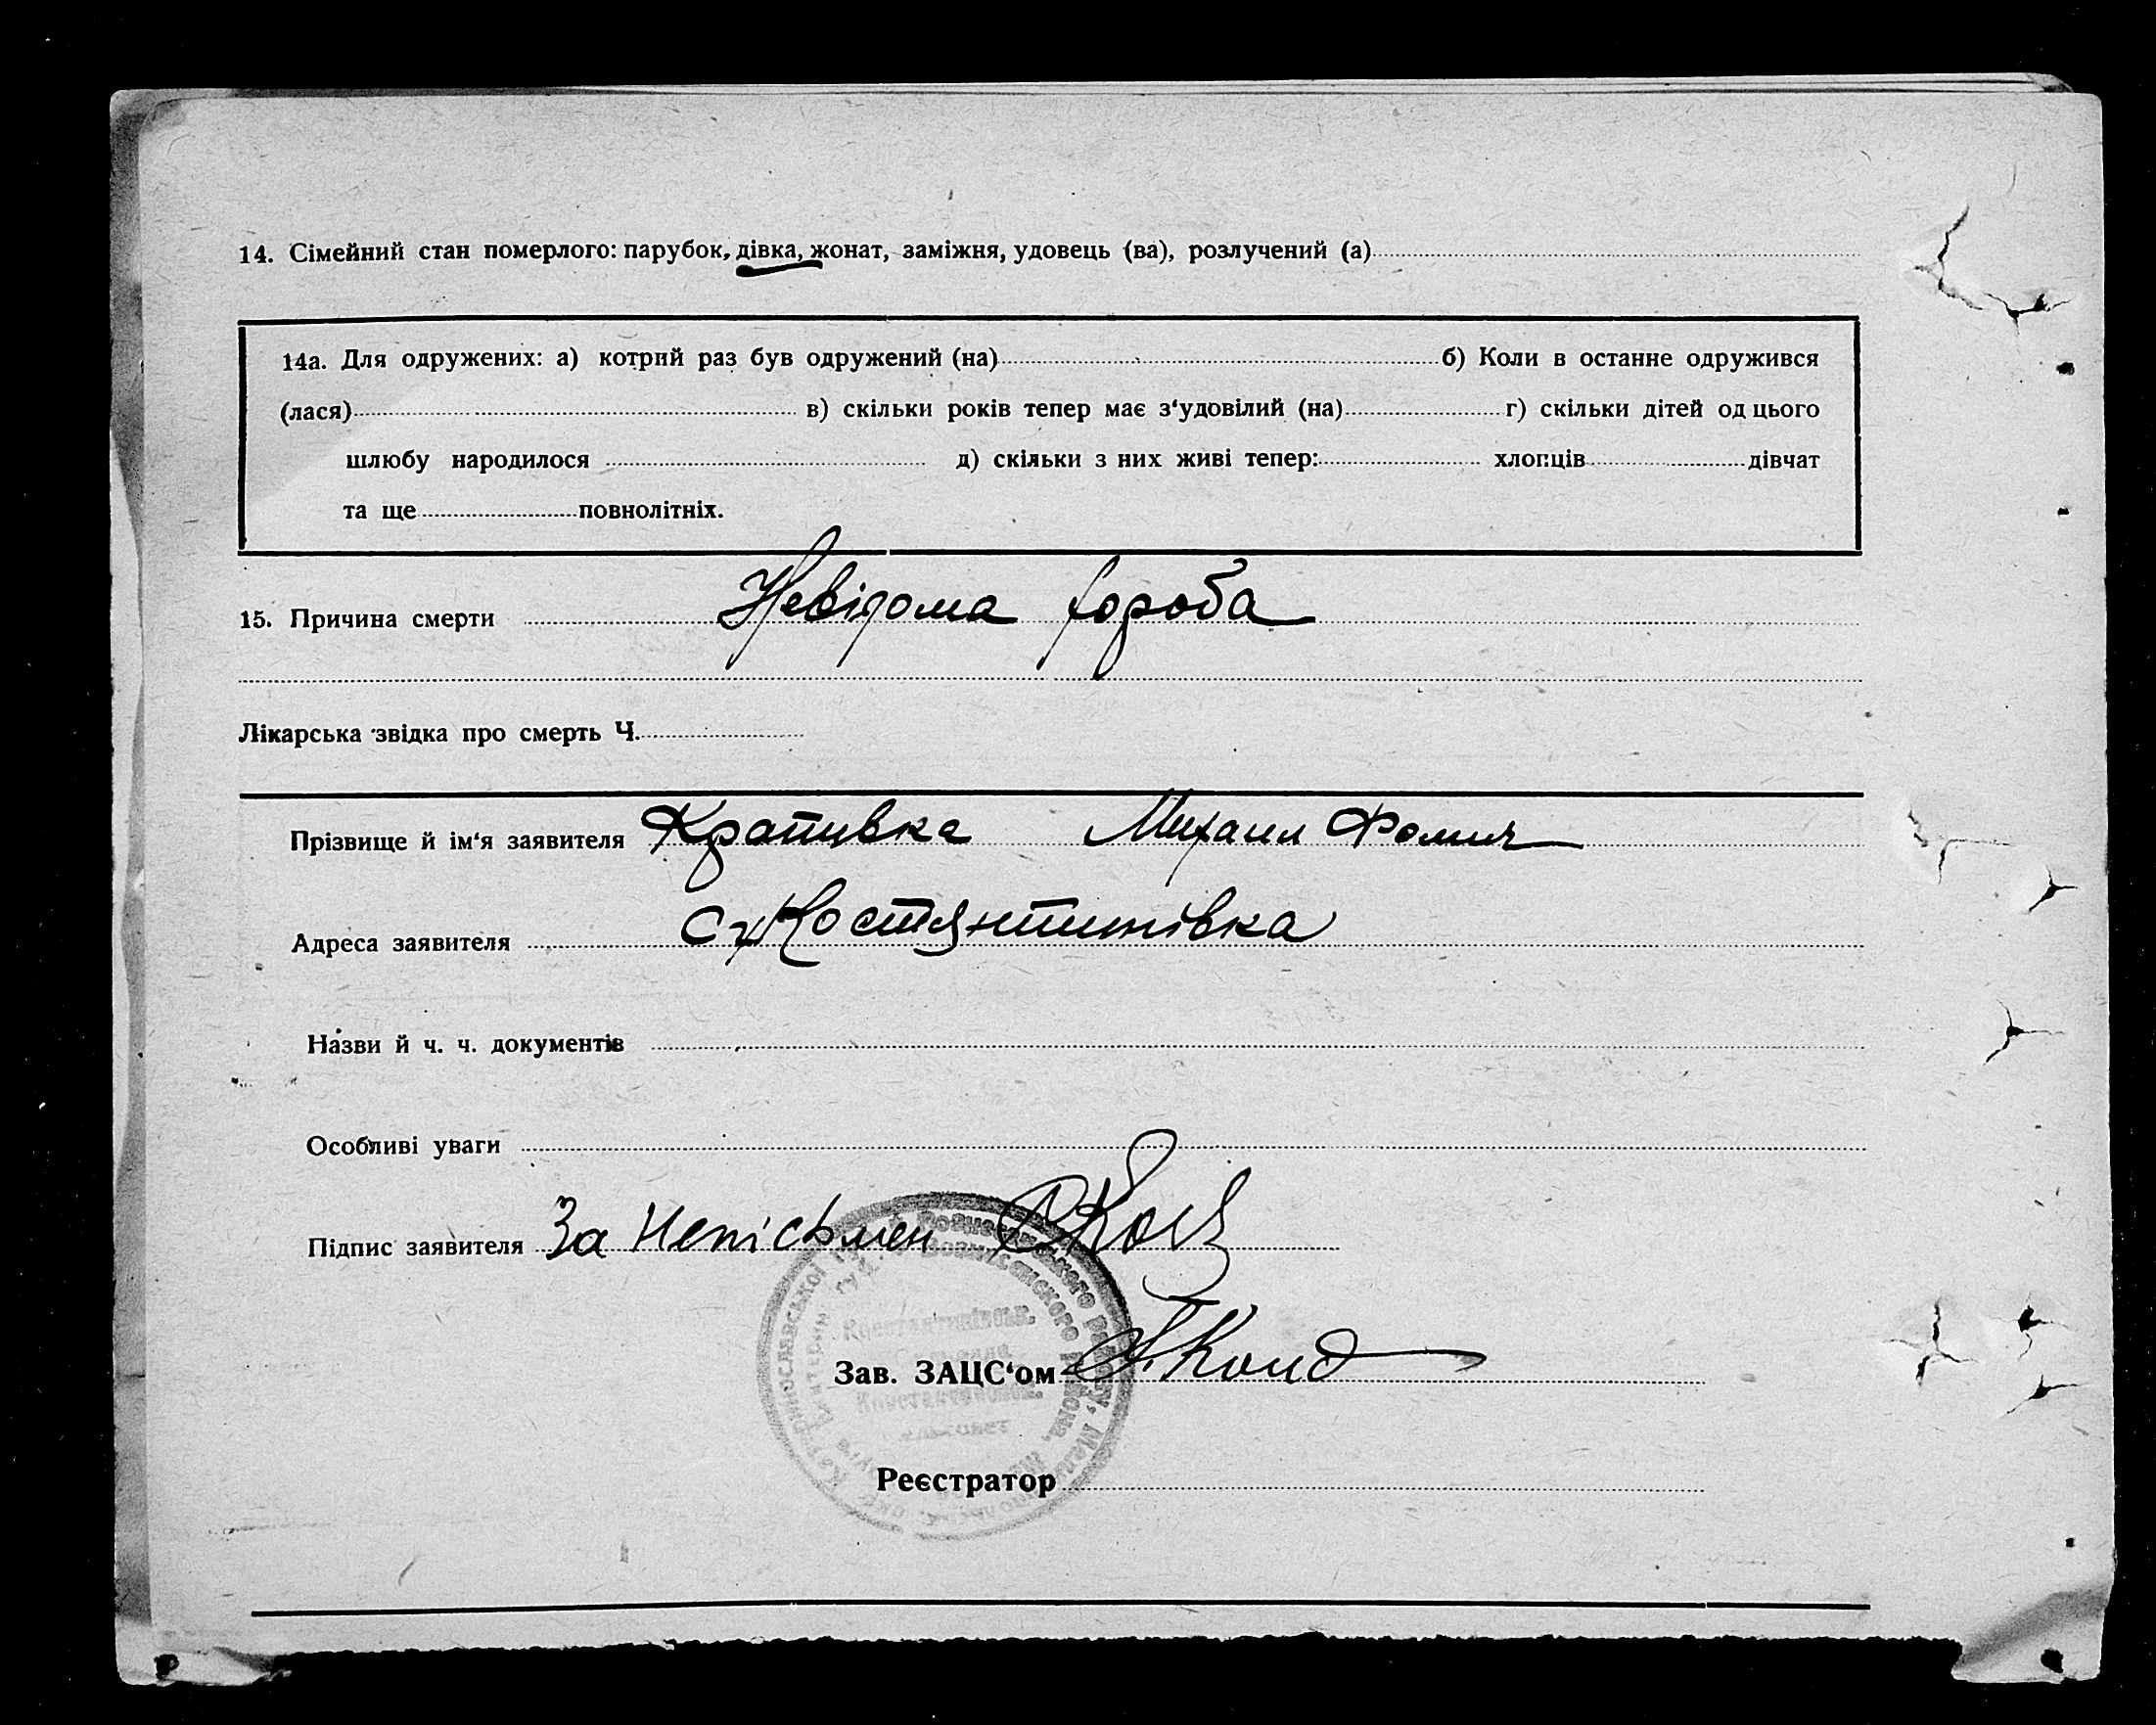 14. Сімейний стан померлого: парубок, дівка, жонат, заміжня, удовець (ва), розлучений (а)
14а. Для одружених: а) котрий раз був одружений (на) б) Коли в останне одружився
(лася) в) скільки років тепер має з‘удовілий (на) г) скільки дітей од цього
шлюбу народилося д) скільки з них живі тепер: хлопців дівчат
та ще повнолітніх.
15. Причина смерти Невідома хороба
Лікарська звідка про смерть Ч.
Прізвище й ім‘я заявителя Крапивка Михаил Фомич
Адреса заявителя с. Костянтинівка
Назви й ч. ч. документів
Особливі уваги
Підпис заявителя За Непісьмен
Зав. ЗАЦС‘ом
Реєстратор